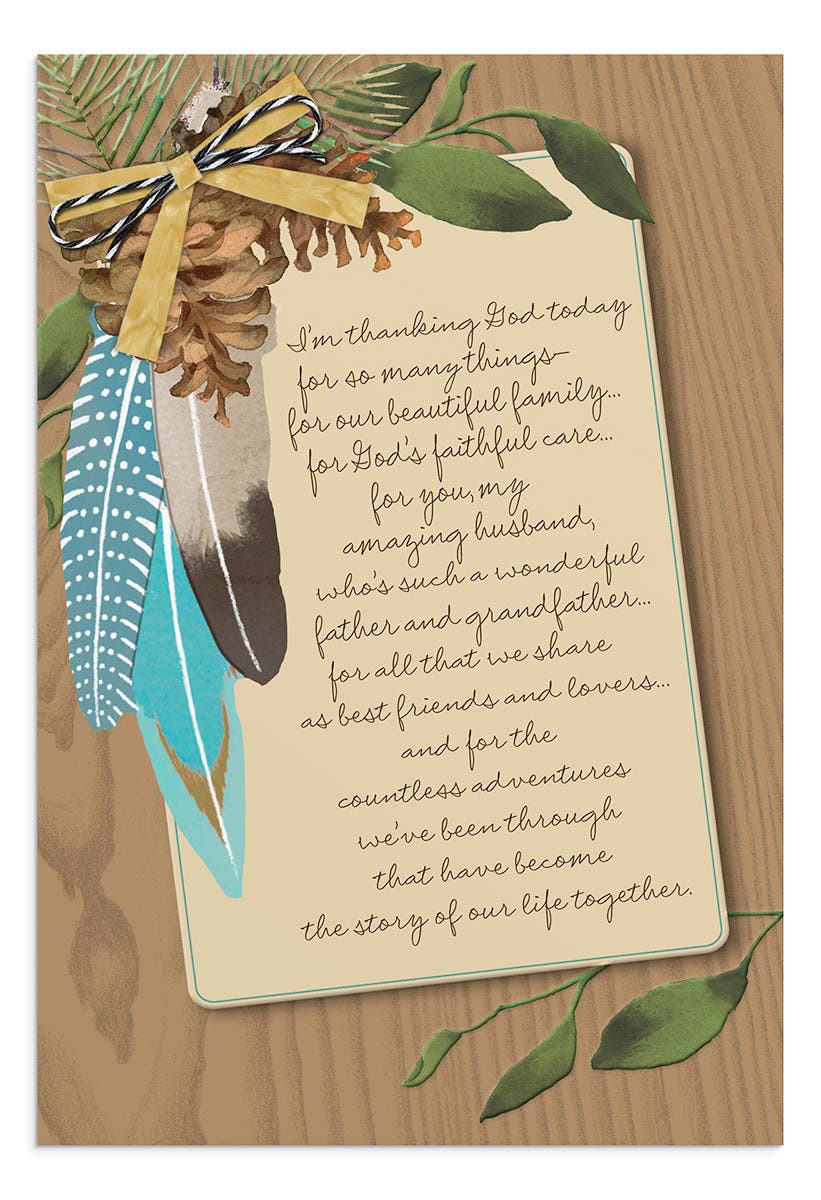 I'm thanking God today
for so many things—
for our beautiful family...
for God's faithful care...
for you, my
amazing husband,
who's such a wonderful
father and grandfather...
for all that we share
as best friends and lovers...
and for the
countless adventures
we've been through
that have become
the story of our life together.